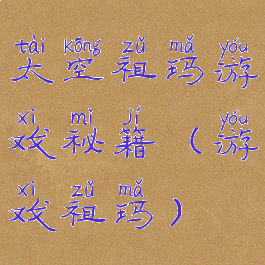 tài kōng zǔ mǎ yóu
太空祖玛游
xì mì jí yóu
戏秘籍（游
xì zǔ mǎ
戏祖玛）